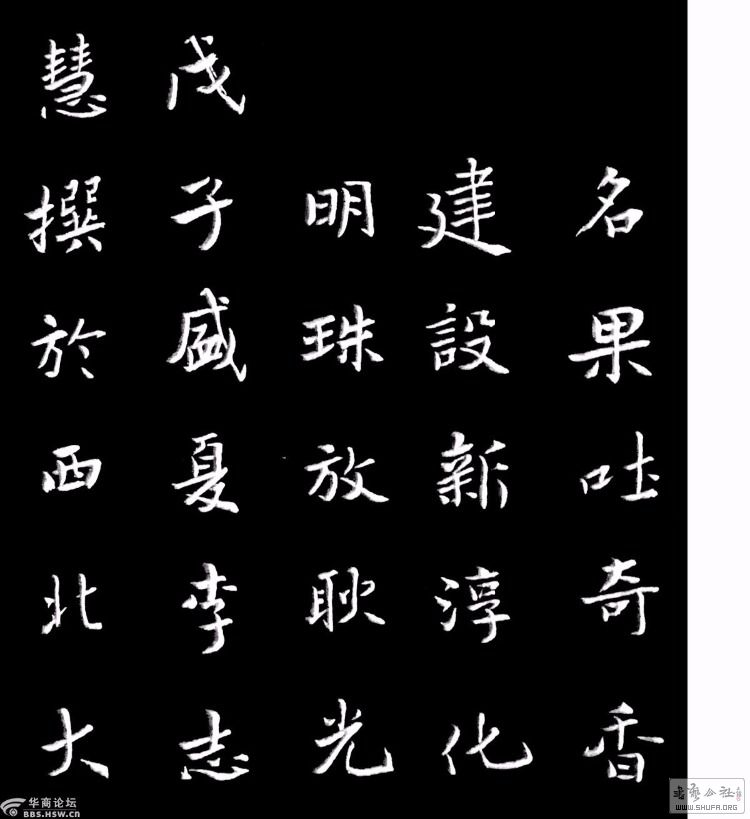 名果吐奇香
建設新淳化
明珠放耿光
戊子盛夏李志
慧撰於西北大
华商论坛
BBS.HSW.CN
WWW.SHUFA.ORG